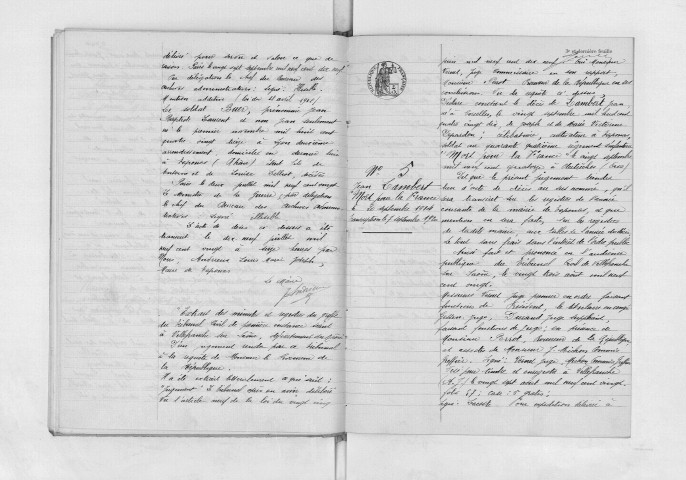 délivré pour servir et valoir ce que de
raison. Paris le vingt sept septembre mil neuf cent dix neuf
Par délégation le Chef du Bureau des
archives administratives : signé :
Mention additive loi du avril 1915
Le soldat prénommé Jean
Baptiste Laurent et non Jean seulement
né le premier novembre mil huit cent
quatre vingt seize à Lyon deuxième
arrondissement domicilié en dernier lieu
à (Rhône) était fils de
et de Louise
Paris le deux juillet mil neuf cent vingt
Le Ministre de la Guerre, par délégation
le chef du Bureau des Archives Adminis-
tratives signé
L'acte de décès ci dessus a été
transcrit le dix neuf juillet mil
neuf cent vingt à heures par
Nous, Louis Marie Joseph
Maire de
Le Maire
Extrait des minutes et registres du greffe
du Tribunal Civil de première instance séant
à Villefranche sur Saône, département du Rhône
D'un jugement rendu par ce tribunal
à la requête de Monsieur le Procureur de
la République
Il a été extrait littéralement ce qui suit :
"Jugement" Le tribunal après en avoir délibéré
Vu l'article neuf de la loi du vingt cinq
3e et dernière feuille
N° 5
Jean Lambert
Mort pour la France
20 septembre 1914
transcription le septembre 1920
juin mil neuf cent dix neuf Ouï Monsieur
Juge Commissaire en son rapport
Monsieur Perrot Procureur de la République en ses
conclusions Vu la requête et pièces
Déclare constant le décès de Lambert Jean
né à le vingt septembre mil huit cent
quatre vingt dix, de Joseph et de Marie
célibataire, cultivateur à
soldat au quarante quatrième régiment d'infanterie
"Mort pour la France" le vingt septembre
mil neuf cent quatorze à Autrèches (Oise)
Dit que le présent jugement tiendra
lieu d'acte de décès au sus nommé, qu'il
sera transcrit sur les registres de l'année
courante de la mairie de et que
mention en sera faite, sur les registres
de ladite mairie aux tables de l'année du décès
Le tout sans frais dans l'intérêt de l'ordre public
Ainsi fait et prononcé en l'audience
publique du Tribunal Civil de Villefranche
sur Saône, le vingt trois août mil neuf
cent vingt.
Messieurs Juge premier en ordre faisant
fonctions de Président, le titulaire en congé
Juge, Durand Juge suppléant
faisant fonctions de Juge, en présence de
Monsieur Perrot, Procureur de la République
et assistés de Monsieur J. Michon Commis
Greffier. Signé : Juge, Michon Commis Greffier
Visé pour timbre et enregistré à Villefranche
le vingt sept août mil neuf cent vingt
folio 67, case : 5 gratis ;
signé : Pour expédition délivrée à